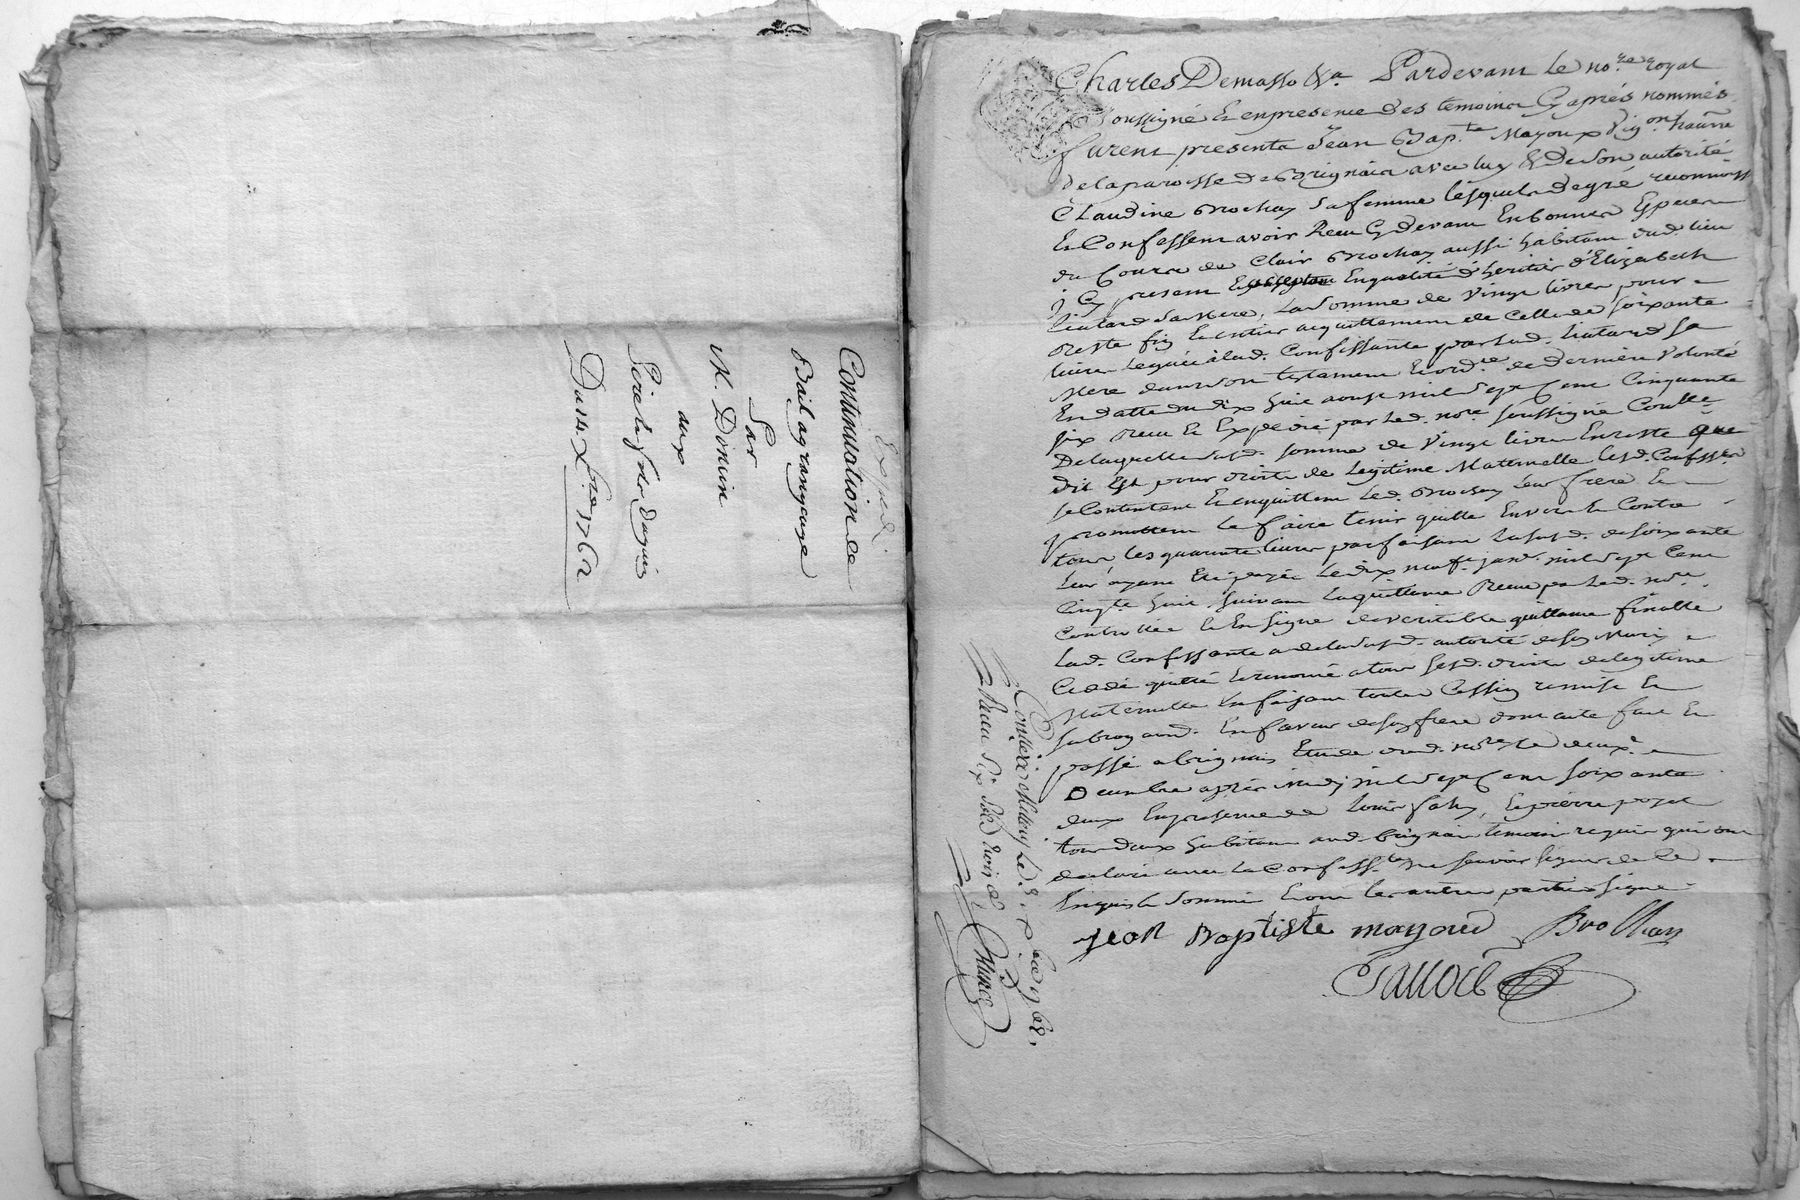 Expéd.
Continuation de
Bail a grangeage
Par
M. Donin
aux
Du 14. xbre 1762
Charles Demasso &a Pardevant Le nore royal
soussigné & en presence des temoins Cy aprés nommés
furent presents Jean Bapte Mayoux vigon haant
de la paroisse de Brignais avec luy & de son autorité
Claudine Brochay sa femme lesquels de gré reconnoiss
& Confessent avoir Receu Cy devant En bonnes Especes
du Cours de Clair Brochay aussi habitant dud. lieu
Cy present En qualité d'heritier d'Elizabeth
Liotard sa Mere, La Somme de vingt livres pour
Reste fin & entier acquittement de Celle de soixante
livres Leguée à lad. Confessante par lad. Liotard sa
Mere dans son testament & ordce de derniere volonté
En datte du dix huit aoust mil sept Cent Cinquante
six Receu & Expedié par Led. nore soussigné Conllé
De laquelle susd. somme de vingt livres En reste que
dit Est pour droits de Legitime Maternelle Lesd. Confess
se Contentent & en quittent Led. Brochay leur frere &
promettent Le faire tenir quitte Envers & Contre
tous Les quarante livres parfaisant La susd. de soixante
leur ayant Eté payée Le dix neuf janv. mil sept Cent
Cinqte huit suivant La quittance Receu par Led. nore
Controllée & En Signe de veritable quittance finalle
Lad. Confessante a de la susd. autorité de son Mary
Cedé quitté & renoncé a tous sesd. droits de legitime
Maternelle En faisant toutes Cession remise &
subrogaon. En faveur de son frere dont acte fait &
passé a brignais Etude dud. nore Le deuxe
Decembre après Midy mil sept Cent soixante
deux En presence de Louis faky, & pierre pojet
tous deux habitans aud. brignais temoins requis qui ont
declaré avec La Confesste ne scavoir signer de ce
Enquis & sommés & ont les autres parties signé
jean Baptiste mayoud Brochay
Controllé a Millery Le 8e xbre 1762
Receu Six Sols Trois d.